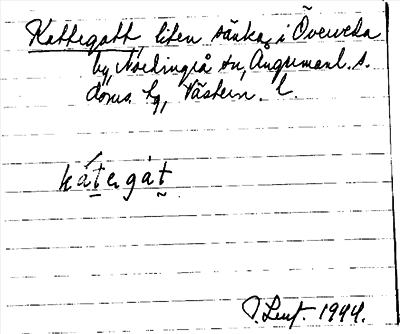 Kattegatt liten sänka i Överveda
by, Nordingrå sn, Ångermanl. s.
doms. hg, Västern. l.
kátegàt
1944.